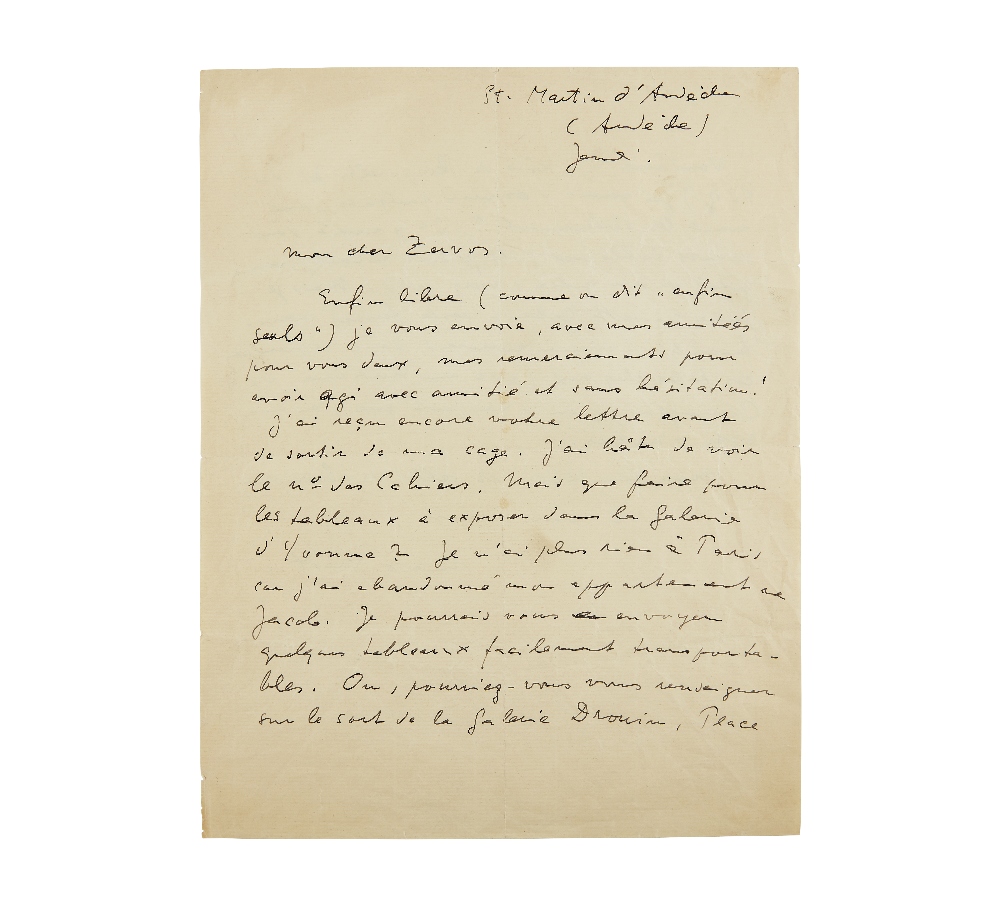 St. Martin d'Ardèche
(Ardèche)
Jeudi.
mon cher Zervos.
Enfin libre (comme on dit "enfin
seuls") je vous envoie, avec mes amitiés
pour vous deux, mes remerciements pour
avoir agi avec amitié et sans hésitation!
J'ai reçu encore votre lettre avant
de sortir de ma cage. J'ai hâte de voir
le nº des Cahiers. Mais que faire pour
les tableaux à exposer dans la Galerie
d'Yvonne? Je n'ai plus rien à Paris
car j'ai abandonné mon appartement rue
Jacob. Je pourrais vous envoyer
quelques tableaux facilement transporta-
bles. Ou, pourriez-vous vous renseigner
sur le sort de la galerie Drouin, Place